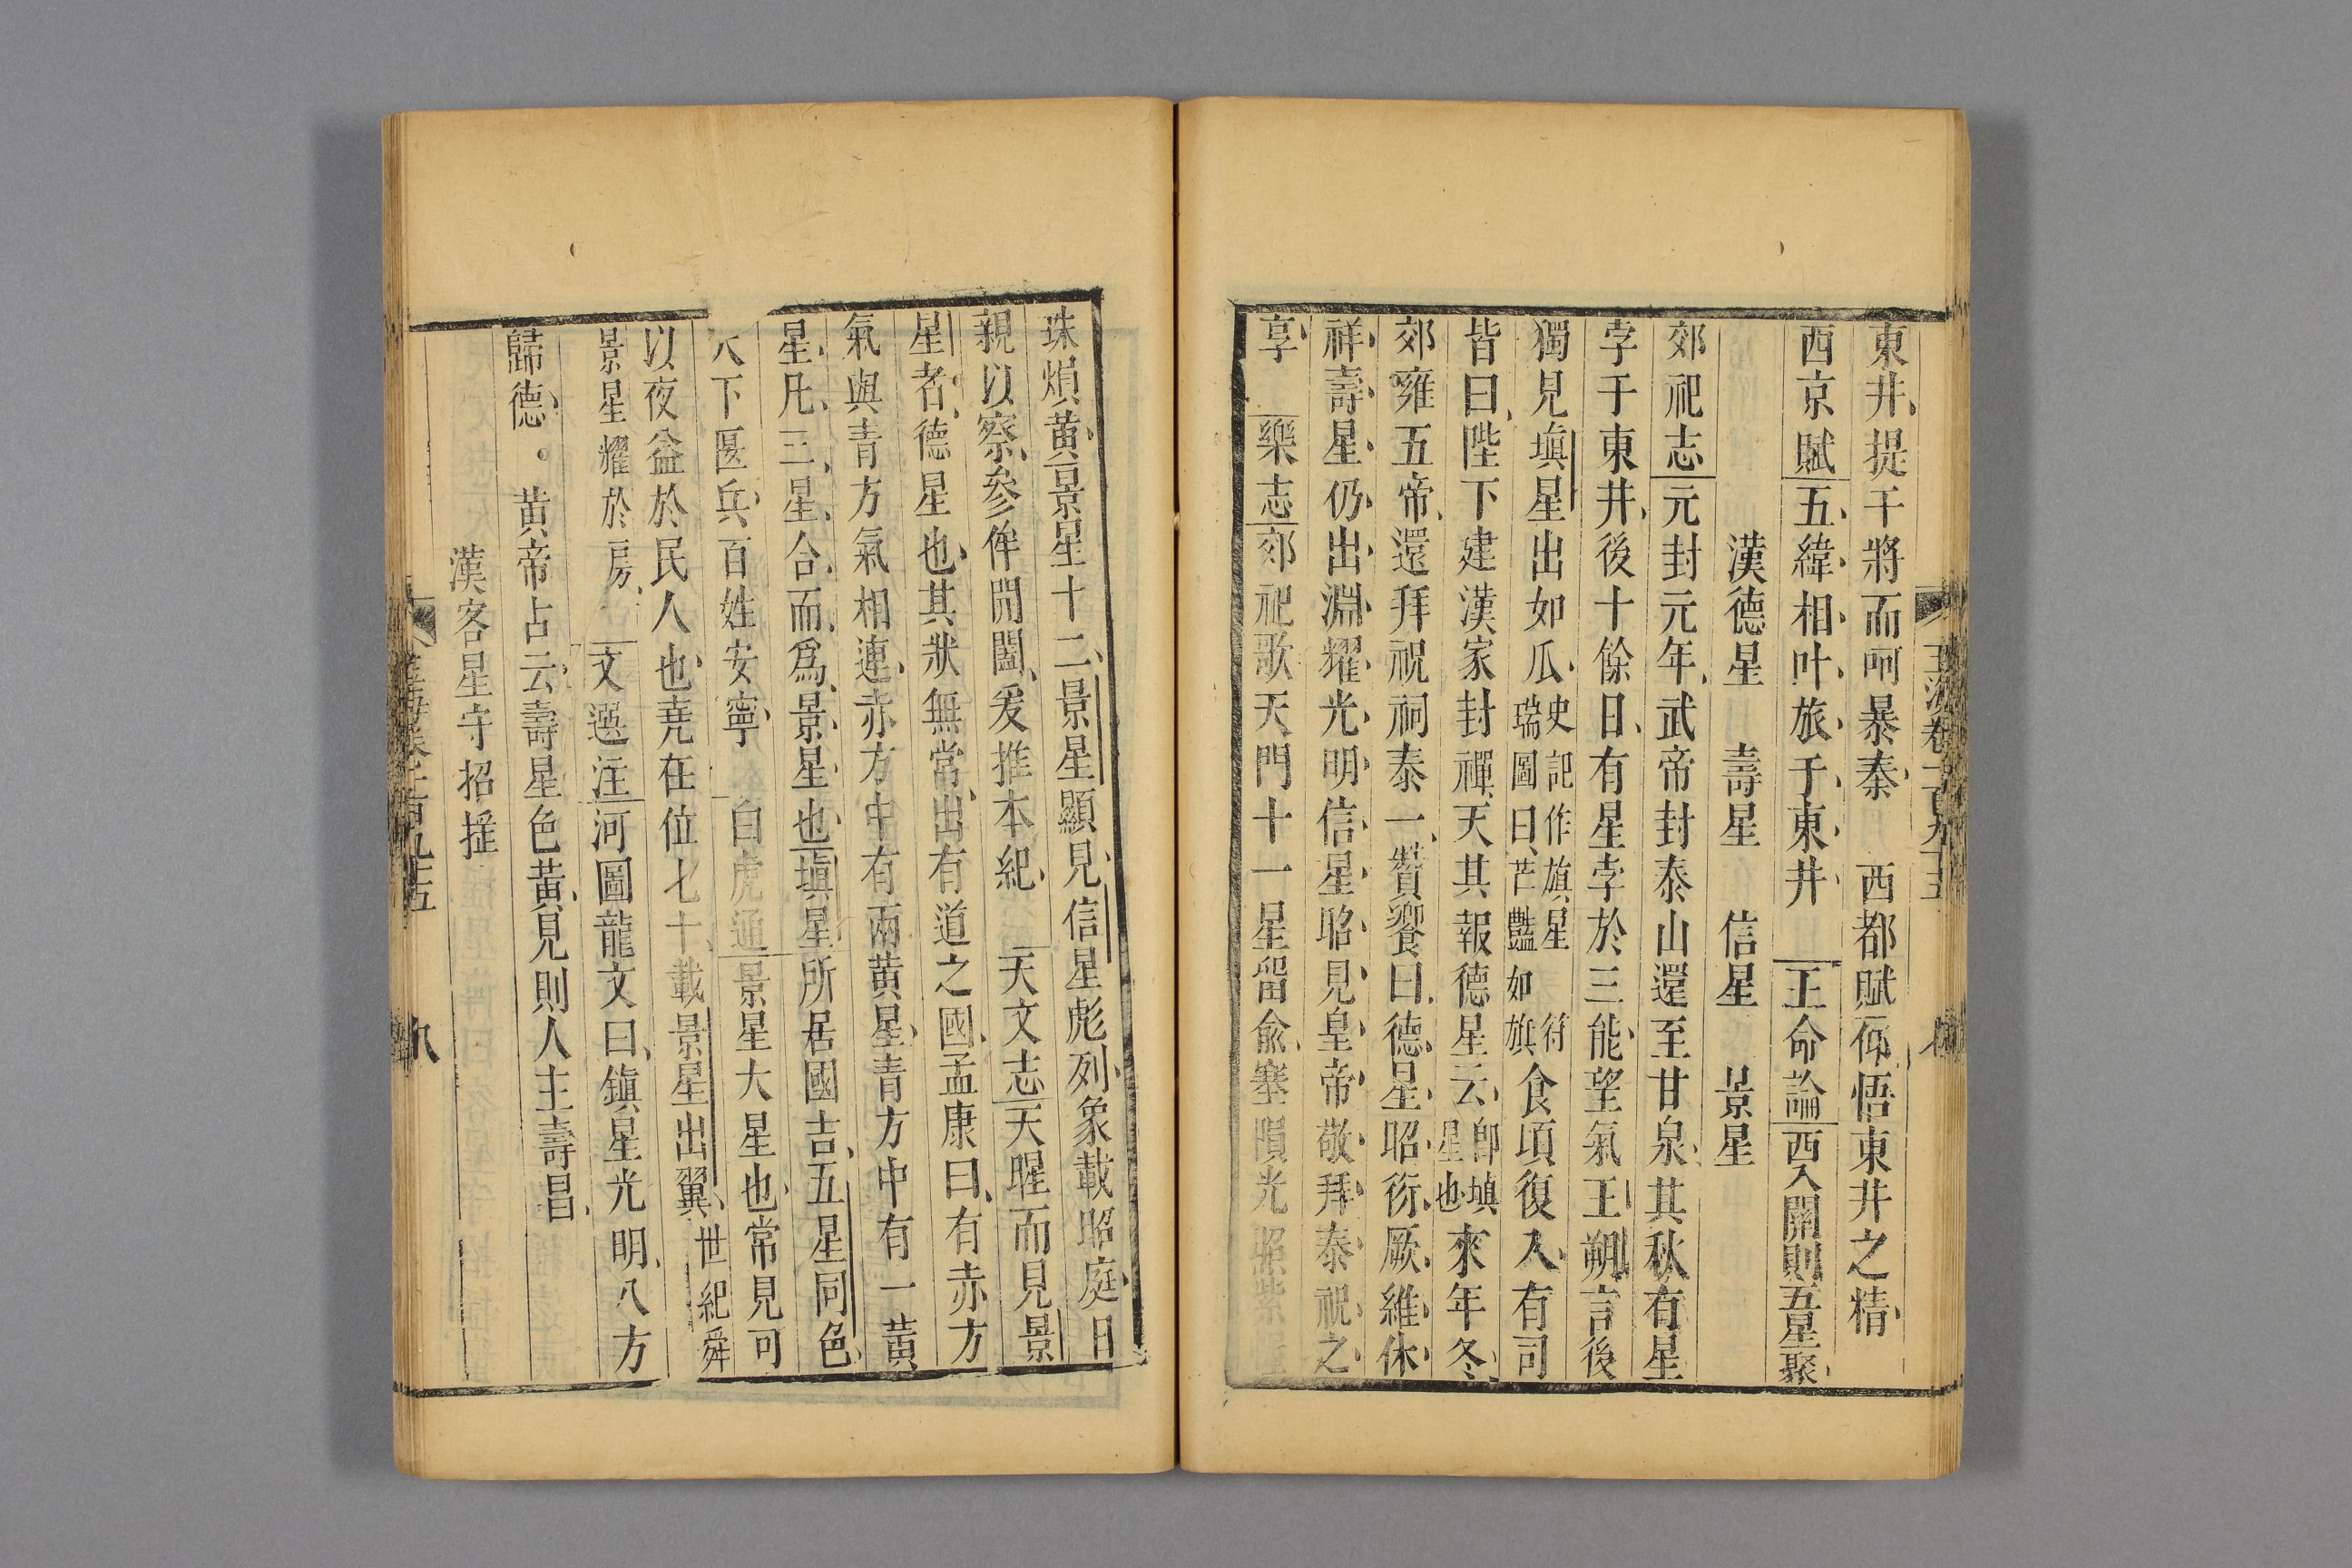 玉海卷一百九十五
東井提干將而呵暴秦　西都賦仰悟東井之精
西京賦五緯相叶旅于東井　王命論西入關則五星聚
漢德星　壽星　信星　景星
郊祀志元封元年武帝封泰山還至甘泉其秋有星
孛于東井後十餘日有星孛於三能望氣王朔言後
獨見塡星出如瓜史記作旗星符瑞圖曰芒豔如旗食頃復入有司
皆曰陛下建漢家封禪天其報德星云卽塡星也來年冬
郊雍五帝還拜祝祠泰一贊饗曰德星昭衍厥維休
祥壽星仍出淵耀光明信星昭見皇帝敬拜泰祝之
享　樂志郊祀歌天門十一星留兪塞隕光照紫
珠熉黄景星十二景星顯見信星彪列象載昭庭日
親以察參侔開闔爰推本紀　天文志天暒而見景
星者德星也其狀無常出有道之國孟康曰有赤方
氣與青方氣相連赤方中有兩黄星青方中有一黄
星凡三星合而爲景星也塡星所居國吉五星同色
天下偃兵百姓安寧　白虎通景星大星也常見可
以夜益於民人也堯在位七十載景星出翼世紀舜
景星耀於房　文選注河圖龍文曰鎭星光明八方
歸德。黄帝占云壽星色黄見則人主壽昌
漢客星守招搖